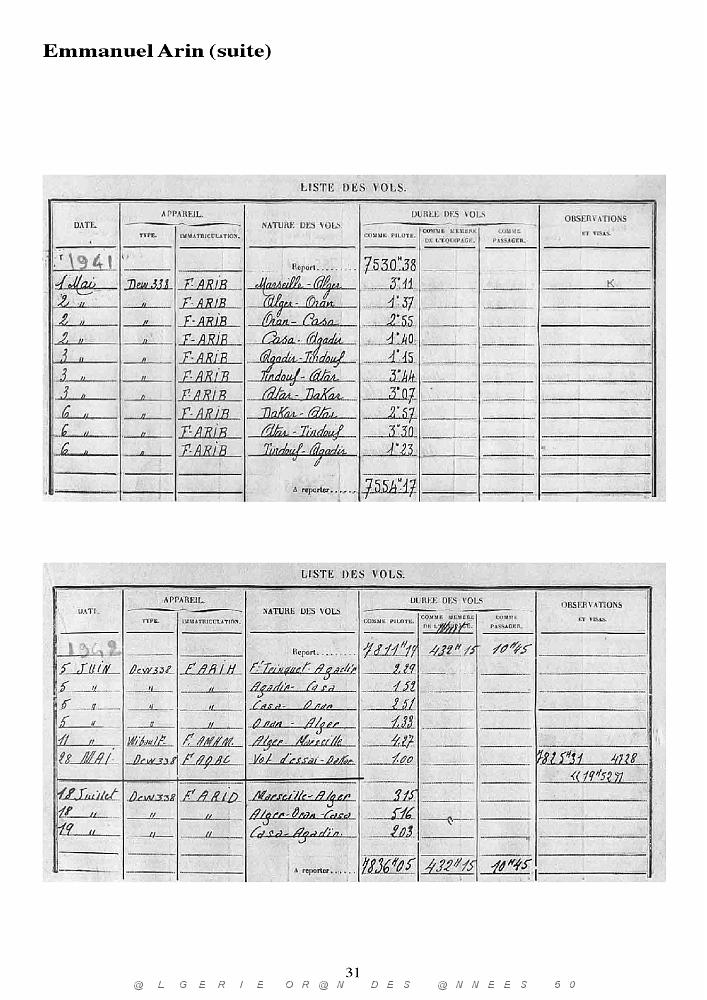 Emmanuel Arin (suite)
LISTE DES VOLS.
DATE. APPAREIL. NATURE DES VOLS DUREE DES VOLS OBSERVATIONS ET VISAS.
TYPE. IMMATRICULATION. COMME PILOTE. COMME MEMBRE DE L'EQUIPAGE. COMME PASSAGER.
1941 Report........ 7530H38
1 Mai Dew 338 F-ARIB Marseille-Alger 3H11
2 " " F-ARIB Alger-Oran 1H37
2 " " F-ARIB Oran-Casa 2H55
2 " " F-ARIB Casa-Agadir 1H40
3 " " F-ARIB Agadir-Tindouf 1H15
3 " " F-ARIB Tindouf-Atar 3H44
3 " " F-ARIB Atar-Dakar 3H07
6 " " F-ARIB Dakar-Atar 2H57
6 " " F-ARIB Atar-Tindouf 3H30
6 " " F-ARIB Tindouf-Agadir 1H23
A reporter...... 7554H17
LISTE DES VOLS.
DATE. APPAREIL. NATURE DES VOLS DUREE DES VOLS OBSERVATIONS ET VISAS.
TYPE. IMMATRICULATION. COMME PILOTE. COMME MEMBRE DE L'EQUIPAGE. COMME PASSAGER.
1942 Report........ 7811H19 432H15 10H45
5 JUIN Dew338 F ARIH Ft Trinquet-Agadir 2.29
5 " " " Agadir-Casa 1.52
5 " " " Casa-Oran 2.51
5 " " " Oran-Alger 1.33
11 " F. AMHM. Alger-Marseille 4.27
28 MAI. Dew338 F AQAC Vol d'essai-Dakar 1.00 7825H31
18 Juillet Dew338 F ARID Marseille-Alger 3.15
18 " " " Alger-Oran-Casa 5.16
19 " " " Casa-Agadir. 2.03
A reporter...... 7836H05 432H15 10H45
31
@LGERIE OR@N DES @NNEES 50